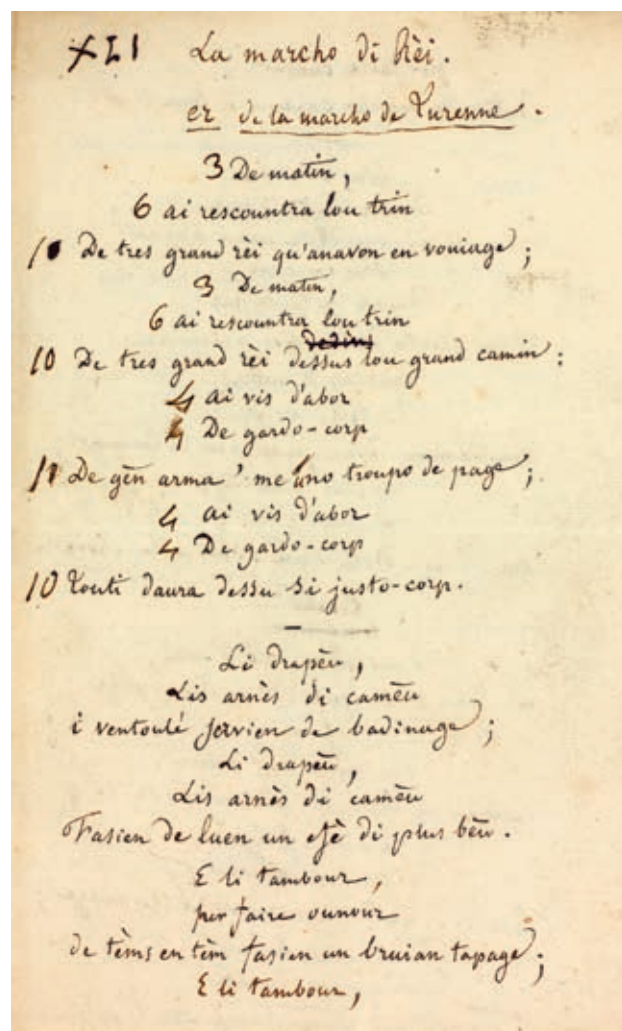 XLI La marcho di Rèi.
er de la marcho de Turenne.
3 De matin,
6 ai rescountra lou trin
10 De tres grand rèi qu'anavon en vouiage;
3 De matin,
6 ai rescountra lou trin
dedins
10 De tres grand rèi dessus lou grand camin:
4 ai vis d'abor
4 De gardo-corp
10 De gèn arma 'me uno troupo de page;
4 ai vis d'abor
4 De gardo-corp
10 Touti daura dessu si justo-corp.
Li drapèu,
Lis arnès di camèu
i ventoulé servien de badinage;
Li drapèu,
Lis arnès di camèu
Fasien de luen un efè di plus bèu.
E li tambour,
per faire ounour
de tèms en tèm fasien un bruian tapage;
E li tambour,